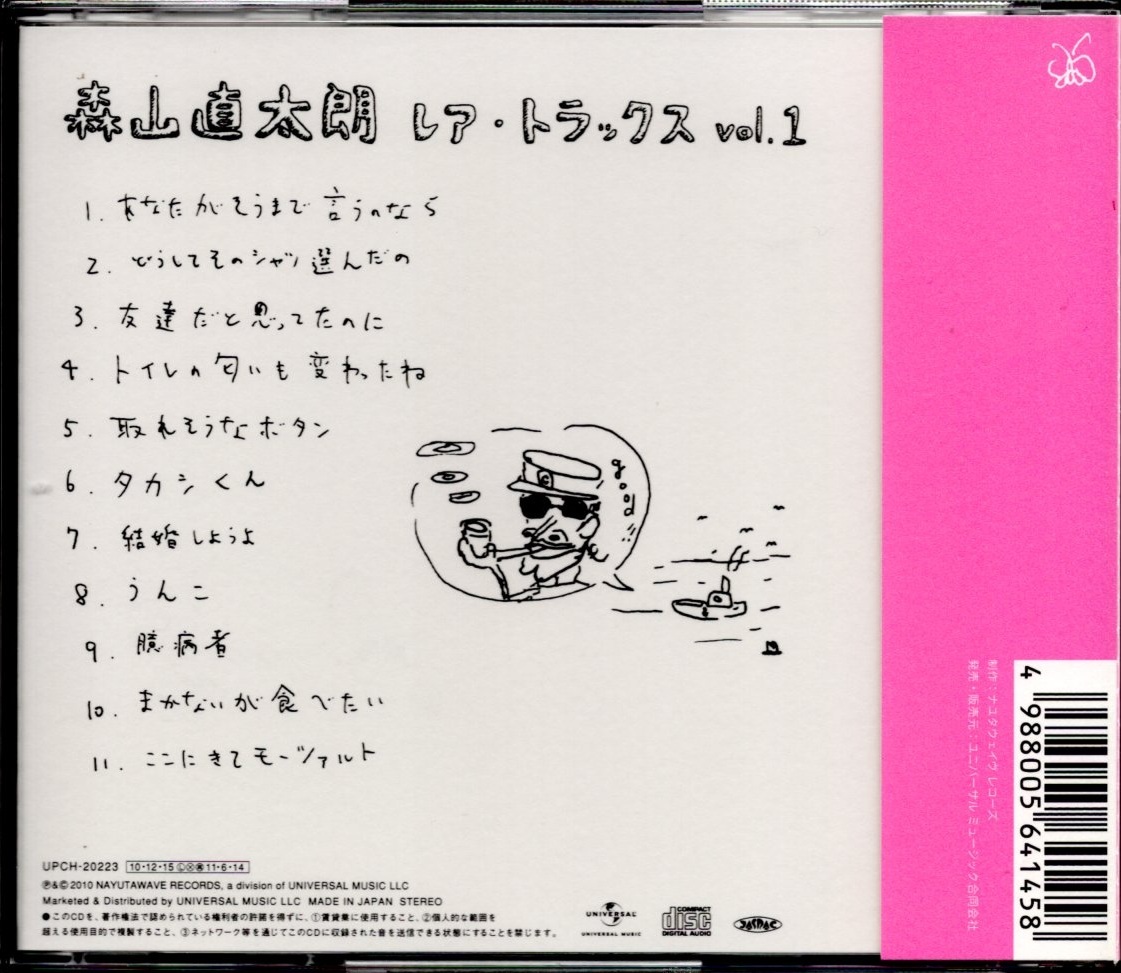 森山直太朗 レア・トラックス vol.1
1. あなたがそうまで言うのなら
2. どうしてそのシャツ選んだの
3. 友達だと思ってたのに
4. トイレの匂いも変わったね
5. 取れそうなボタン
6. タカシくん
7. 結婚しようよ
8. うんこ
9. 臆病者
10. まかないが食べたい
11. ここにきてモーツァルト
good
UPCH-20223 10・12・15 11・6・14
℗&© 2010 NAYUTAWAVE RECORDS, a division of UNIVERSAL MUSIC LLC
Marketed & Distributed by UNIVERSAL MUSIC LLC MADE IN JAPAN STEREO
●このCDを、著作権法で認められている権利者の許諾を得ずに、①賃貸業に使用すること、②個人的な範囲を
超える使用目的で複製すること、③ネットワーク等を通じてこのCDに収録された音を送信できる状態にすることを禁じます。
UNIVERSAL
UNIVERSAL MUSIC
COMPACT
disc
DIGITAL AUDIO
JASRAC
制作：ナユタウェイヴ レコーズ
発売・販売元：ユニバーサル ミュージック合同会社
4 988005 641458